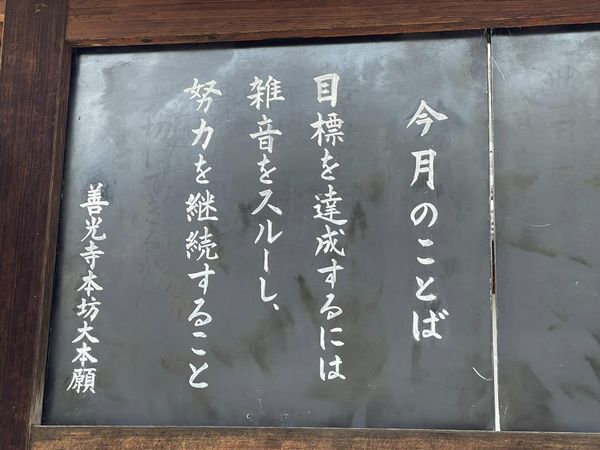 今月のことば
目標を達成するには
雑音をスルーし、
努力を継続すること
善光寺本坊大本願